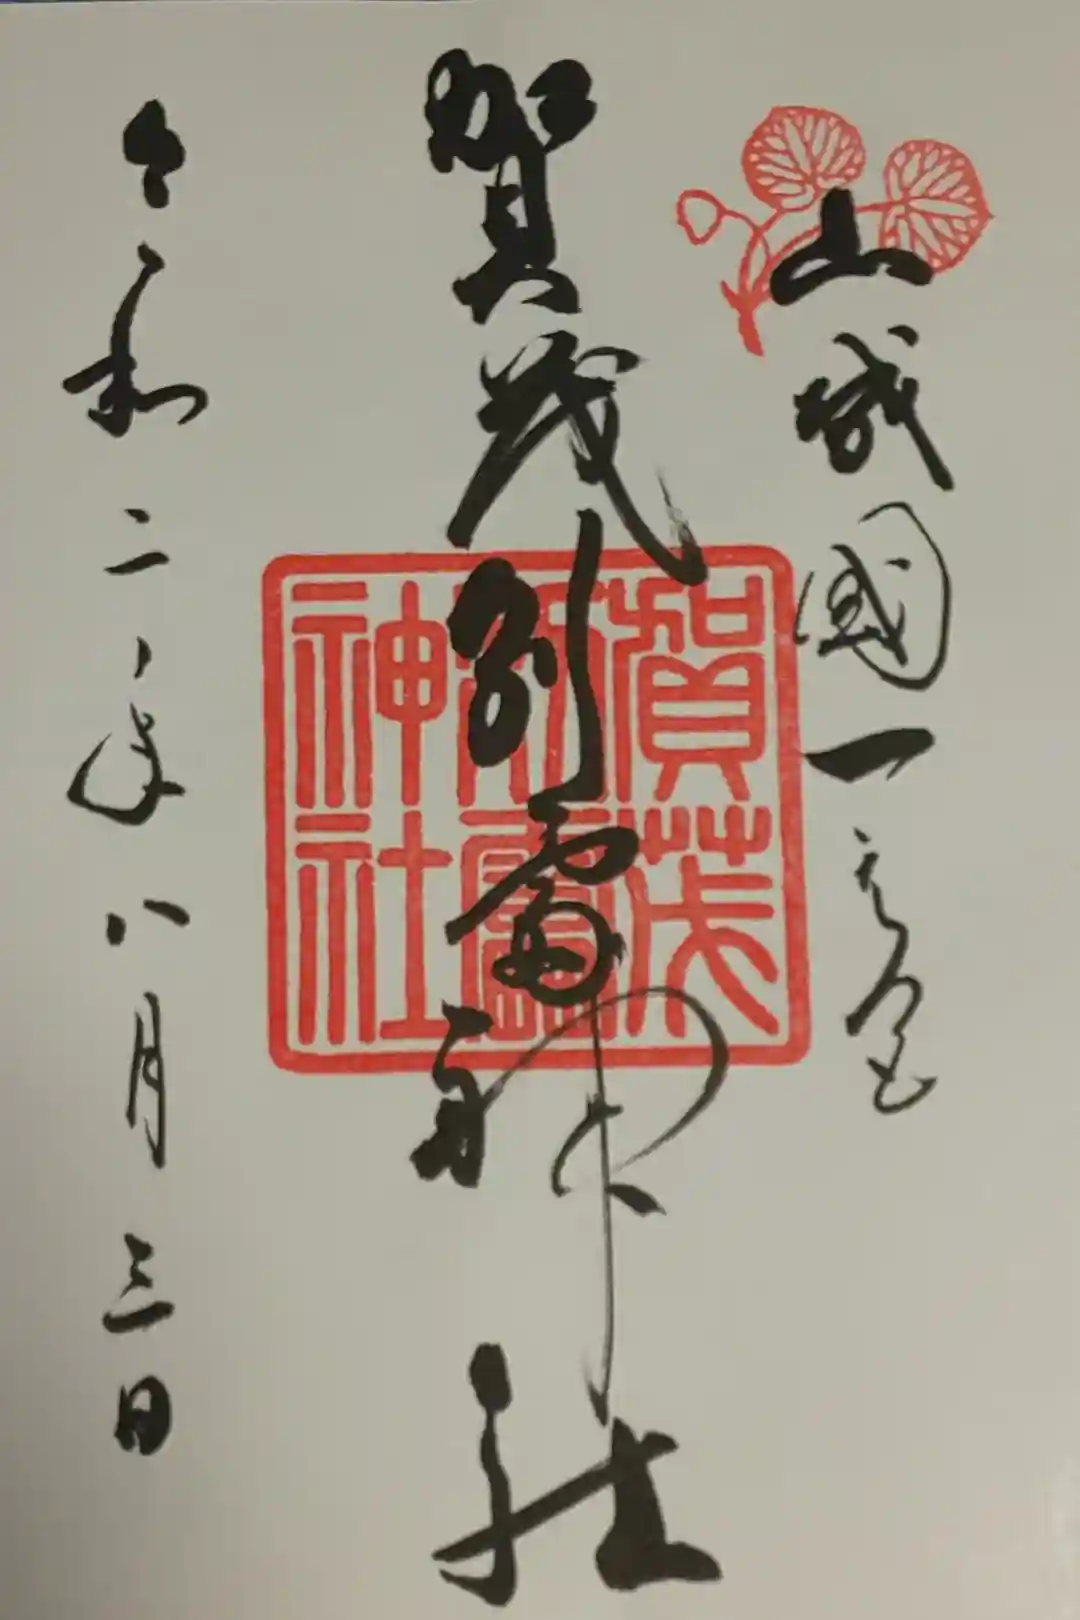 山城國一之宮
賀茂別雷神社
賀茂
別雷
神社
令和二年八月三日